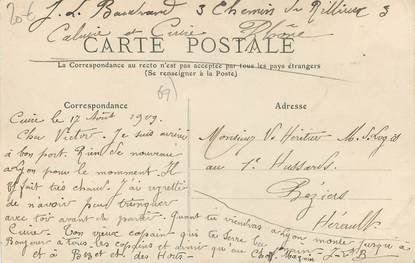 20€ J. L. Bauchrand 3 Chemin de Rillieux 3
Caluire et Cuire Rhône
CARTE POSTALE
La Correspondance au recto n'est pas acceptée par tous les pays étrangers
(Se renseigner à la Poste)
69
Correspondance
Cuire le 17 Août 1909.
Cher Victor. Je suis arrivé
à bon port. Rien de nouveau
à Lyon pour le momment. Il
fait très chaud. J'ai regretté
de n'avoir peu trinquer
avec toi avant de partir. Quant tu viendras à Lyon monte jusqu'à
Cuire. Ton vieux copain qui te serre la main J. L. B
Bonjour à tous les copains et ainsi qu'au Chef
et à et des
Adresse
Monsieur V. Héritier M. d. Logis
au 1er Hussards
Beziers
Hérault